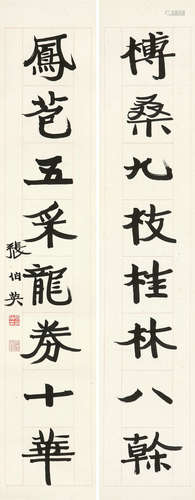 榑桑九枝桂林八榦
鳳苞五采龍券十華
張伯英